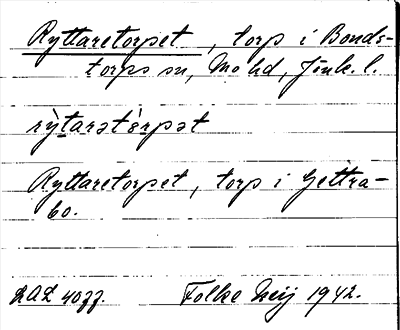 Ryttaretorpet, torp i Bonds-
torps sn, Mo hd, Jönk. l.
rỳtarətèrpət
Ryttaretorpet, torp i Gettra-
bo.
Folke Neij 1942.